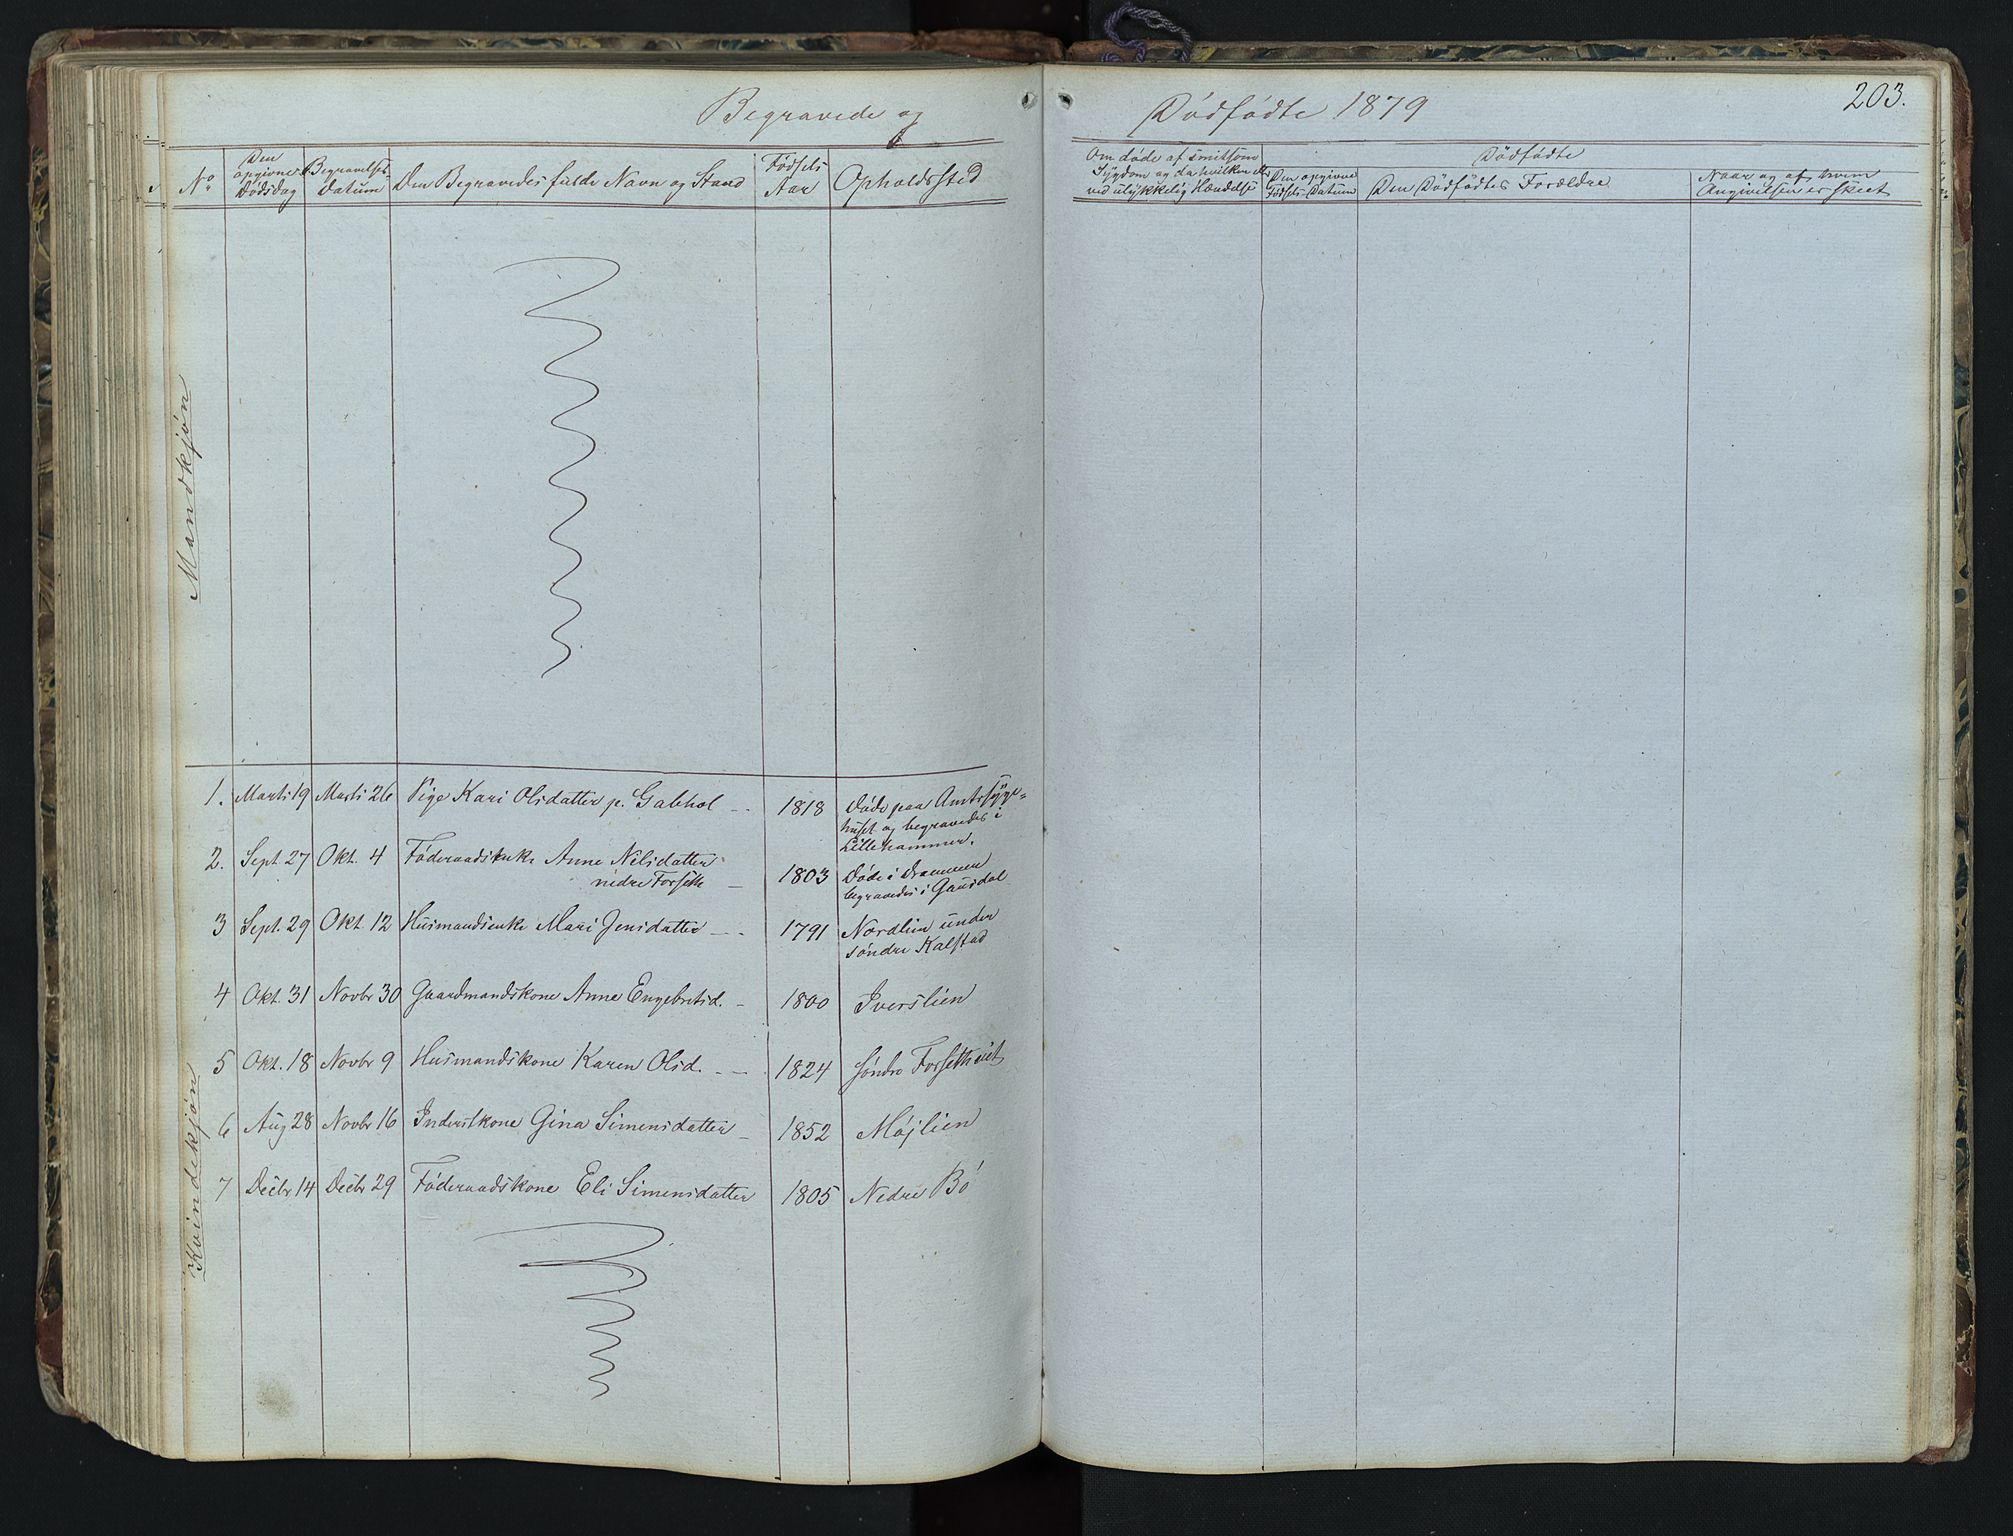 Begravede og
Dødfødte 1879
203.
No
Den opgivne Dødsdag
Begravelses-Datum
Den Begravedes fulde Navn og Stand
Fødsels Aar
Opholdssted
Om døde af smitsom
Sygdom og da hvilken eller
ved ulykkelig Hændelse
Dødfødte
Den opgivne
Fødsels-Datum
Den Dødfødtes Forældre
Naar og af hvem
Angivelsen er skeet
Mandkjøn
1. Marts 19 Marts 26 Pige Kari Olsdatter p. Galehol -- 1818 Døde paa Amtssyge=
huset og begravedes i
Lillehammer.
2. Sept. 27 Okt. 4 Føderaadsenke Anne Nilsdatter
nedre Forseth - 1803 Døde i Drammen
begravedes i Gausdal
3 Sept. 29 Okt. 12 Husmandsenke Mari Jensdatter -- 1791 Nordlien under
søndre Kalstad
4 Okt. 31 Novbr 30 Gaardmandskone Anne Engebretsd. - 1800 Iverslien
5 Okt. 18 Novbr 9 Husmandskone Karen Olsd. -- 1824 søndre Forsetheiet
6 Aug 28 Novbr 16 Inderstkone Gina Simensdatter - 1852 Møjlien
7 Decbr. 14 Decbr 29 Føderaadskone Eli Simensdatter 1805 Nedre Bø
Kvindekjøn